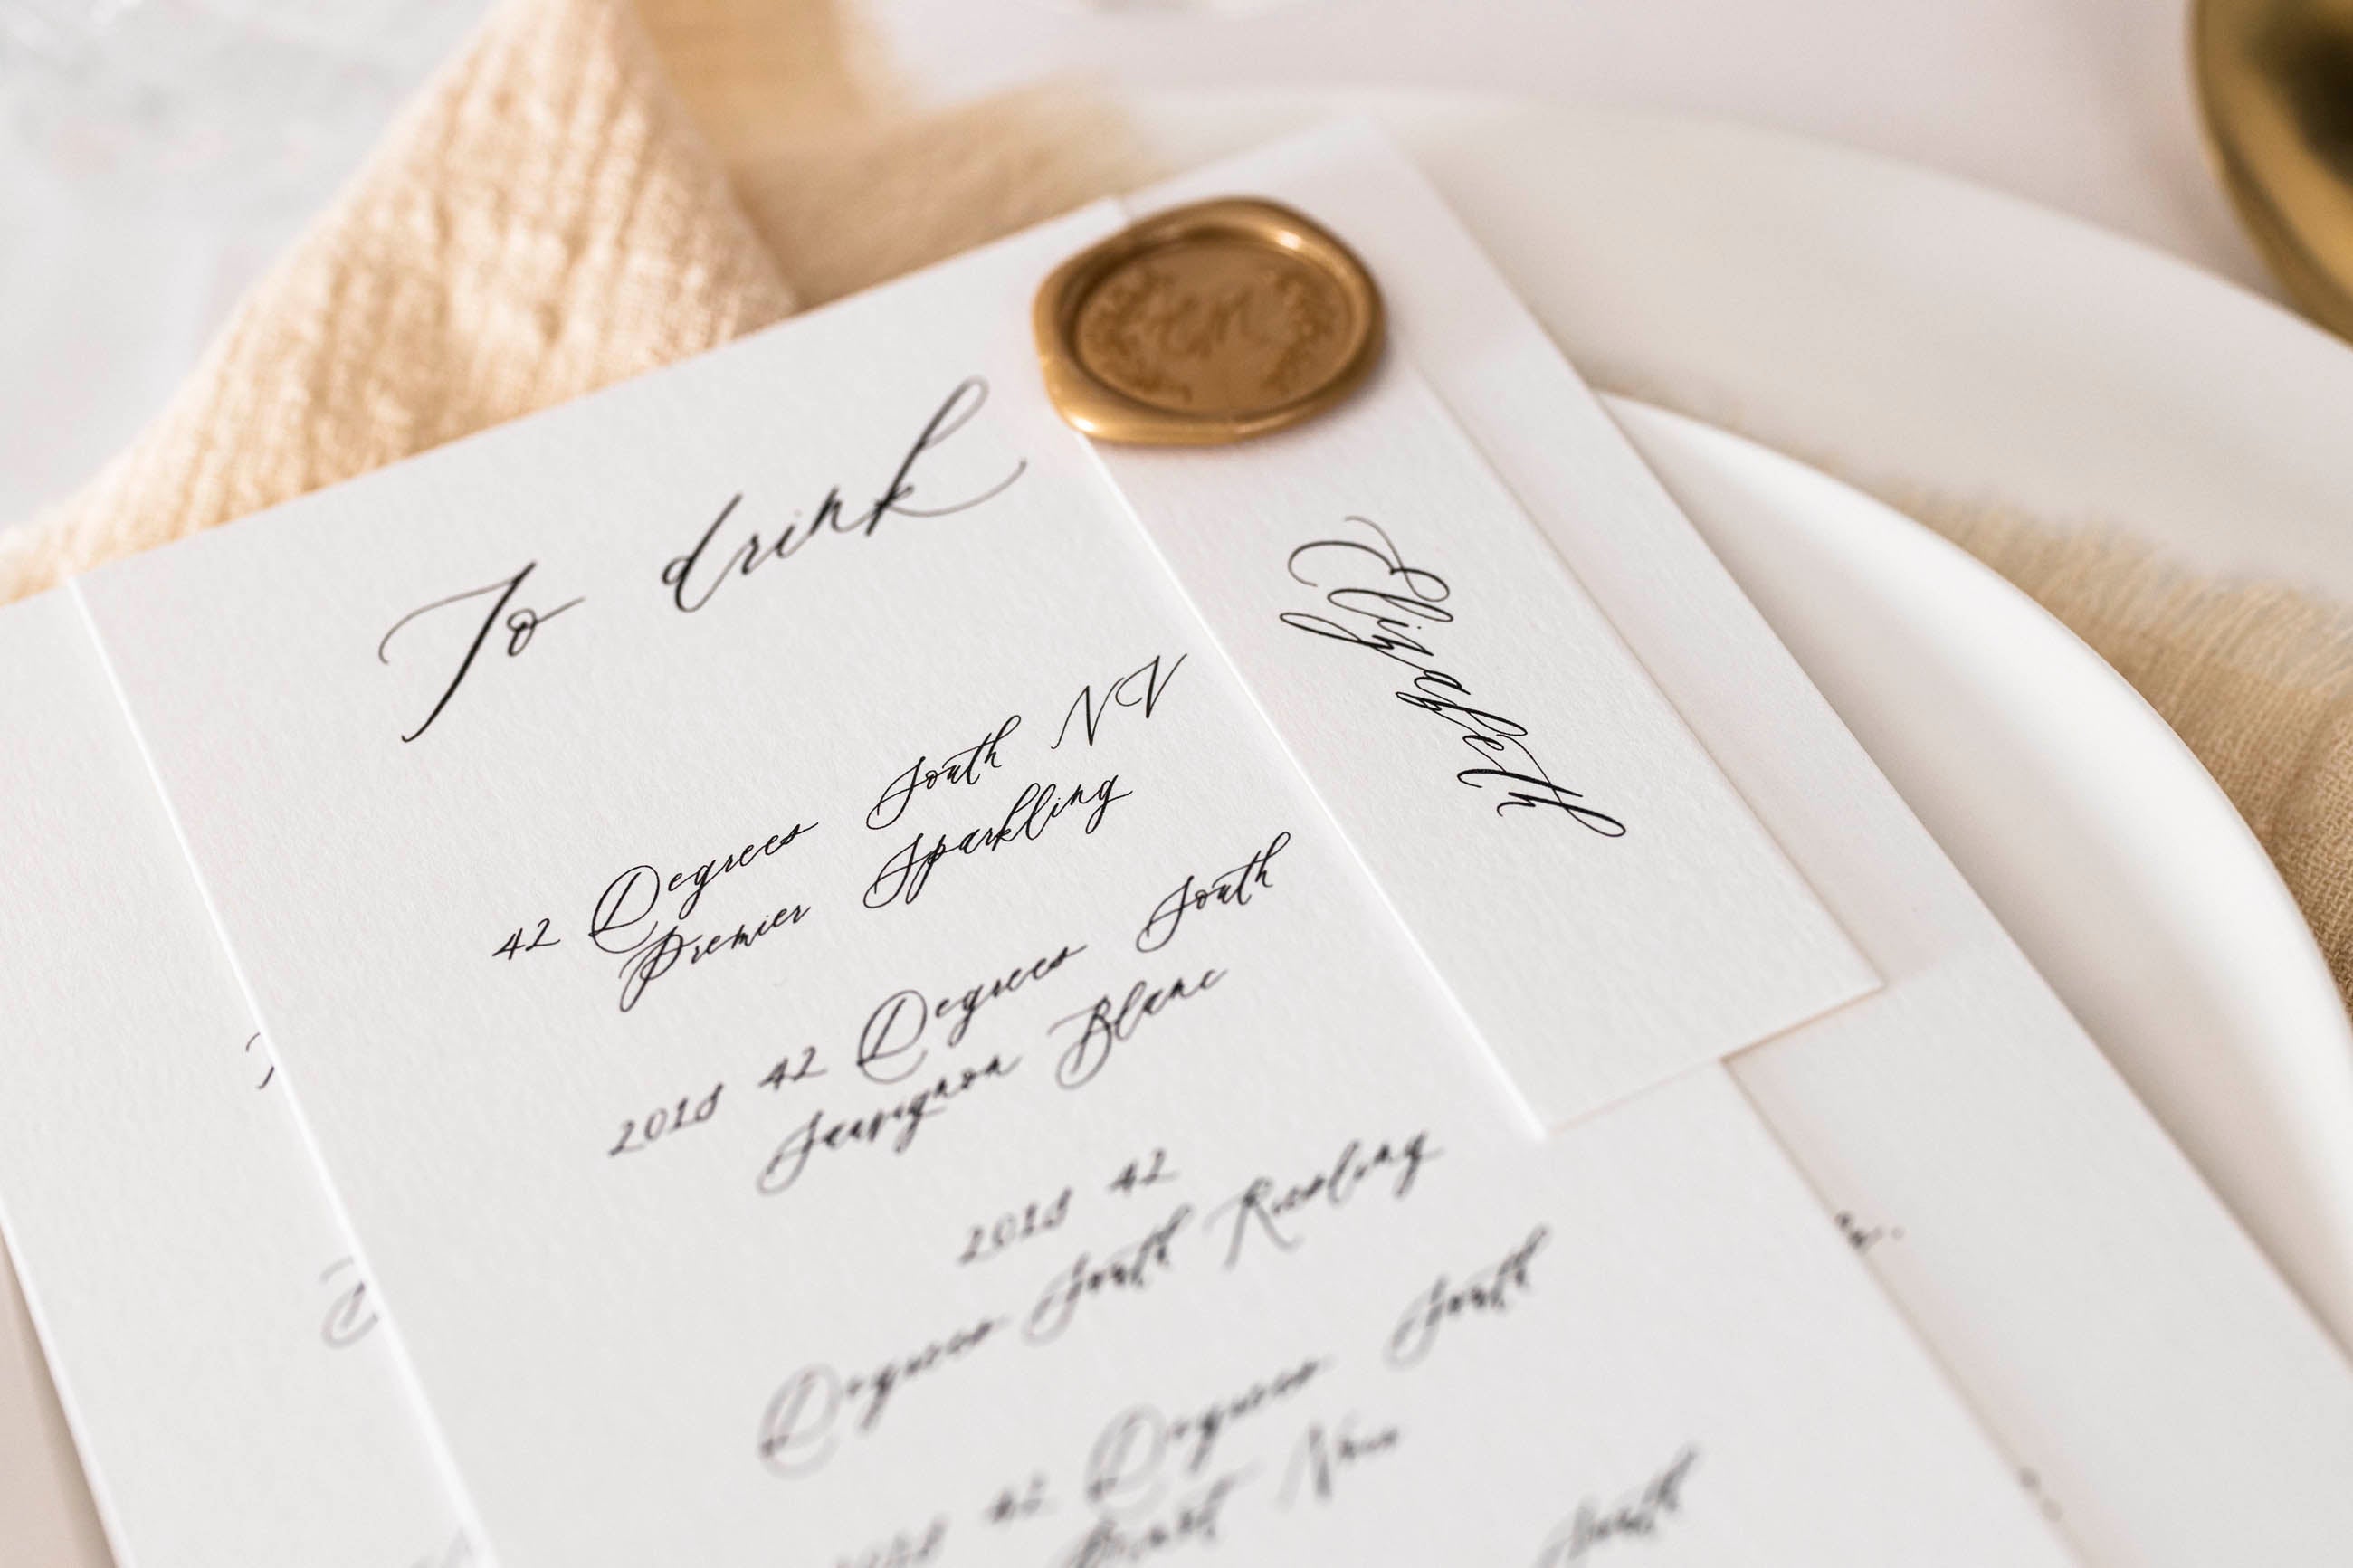 To drink
42 Degrees South NV
Premier Sparkling
2018 42 Degrees South
Sauvignon Blanc
2018 42
Degrees South Riesling
42 Degrees South
Pinot Noir
South
Elizabeth